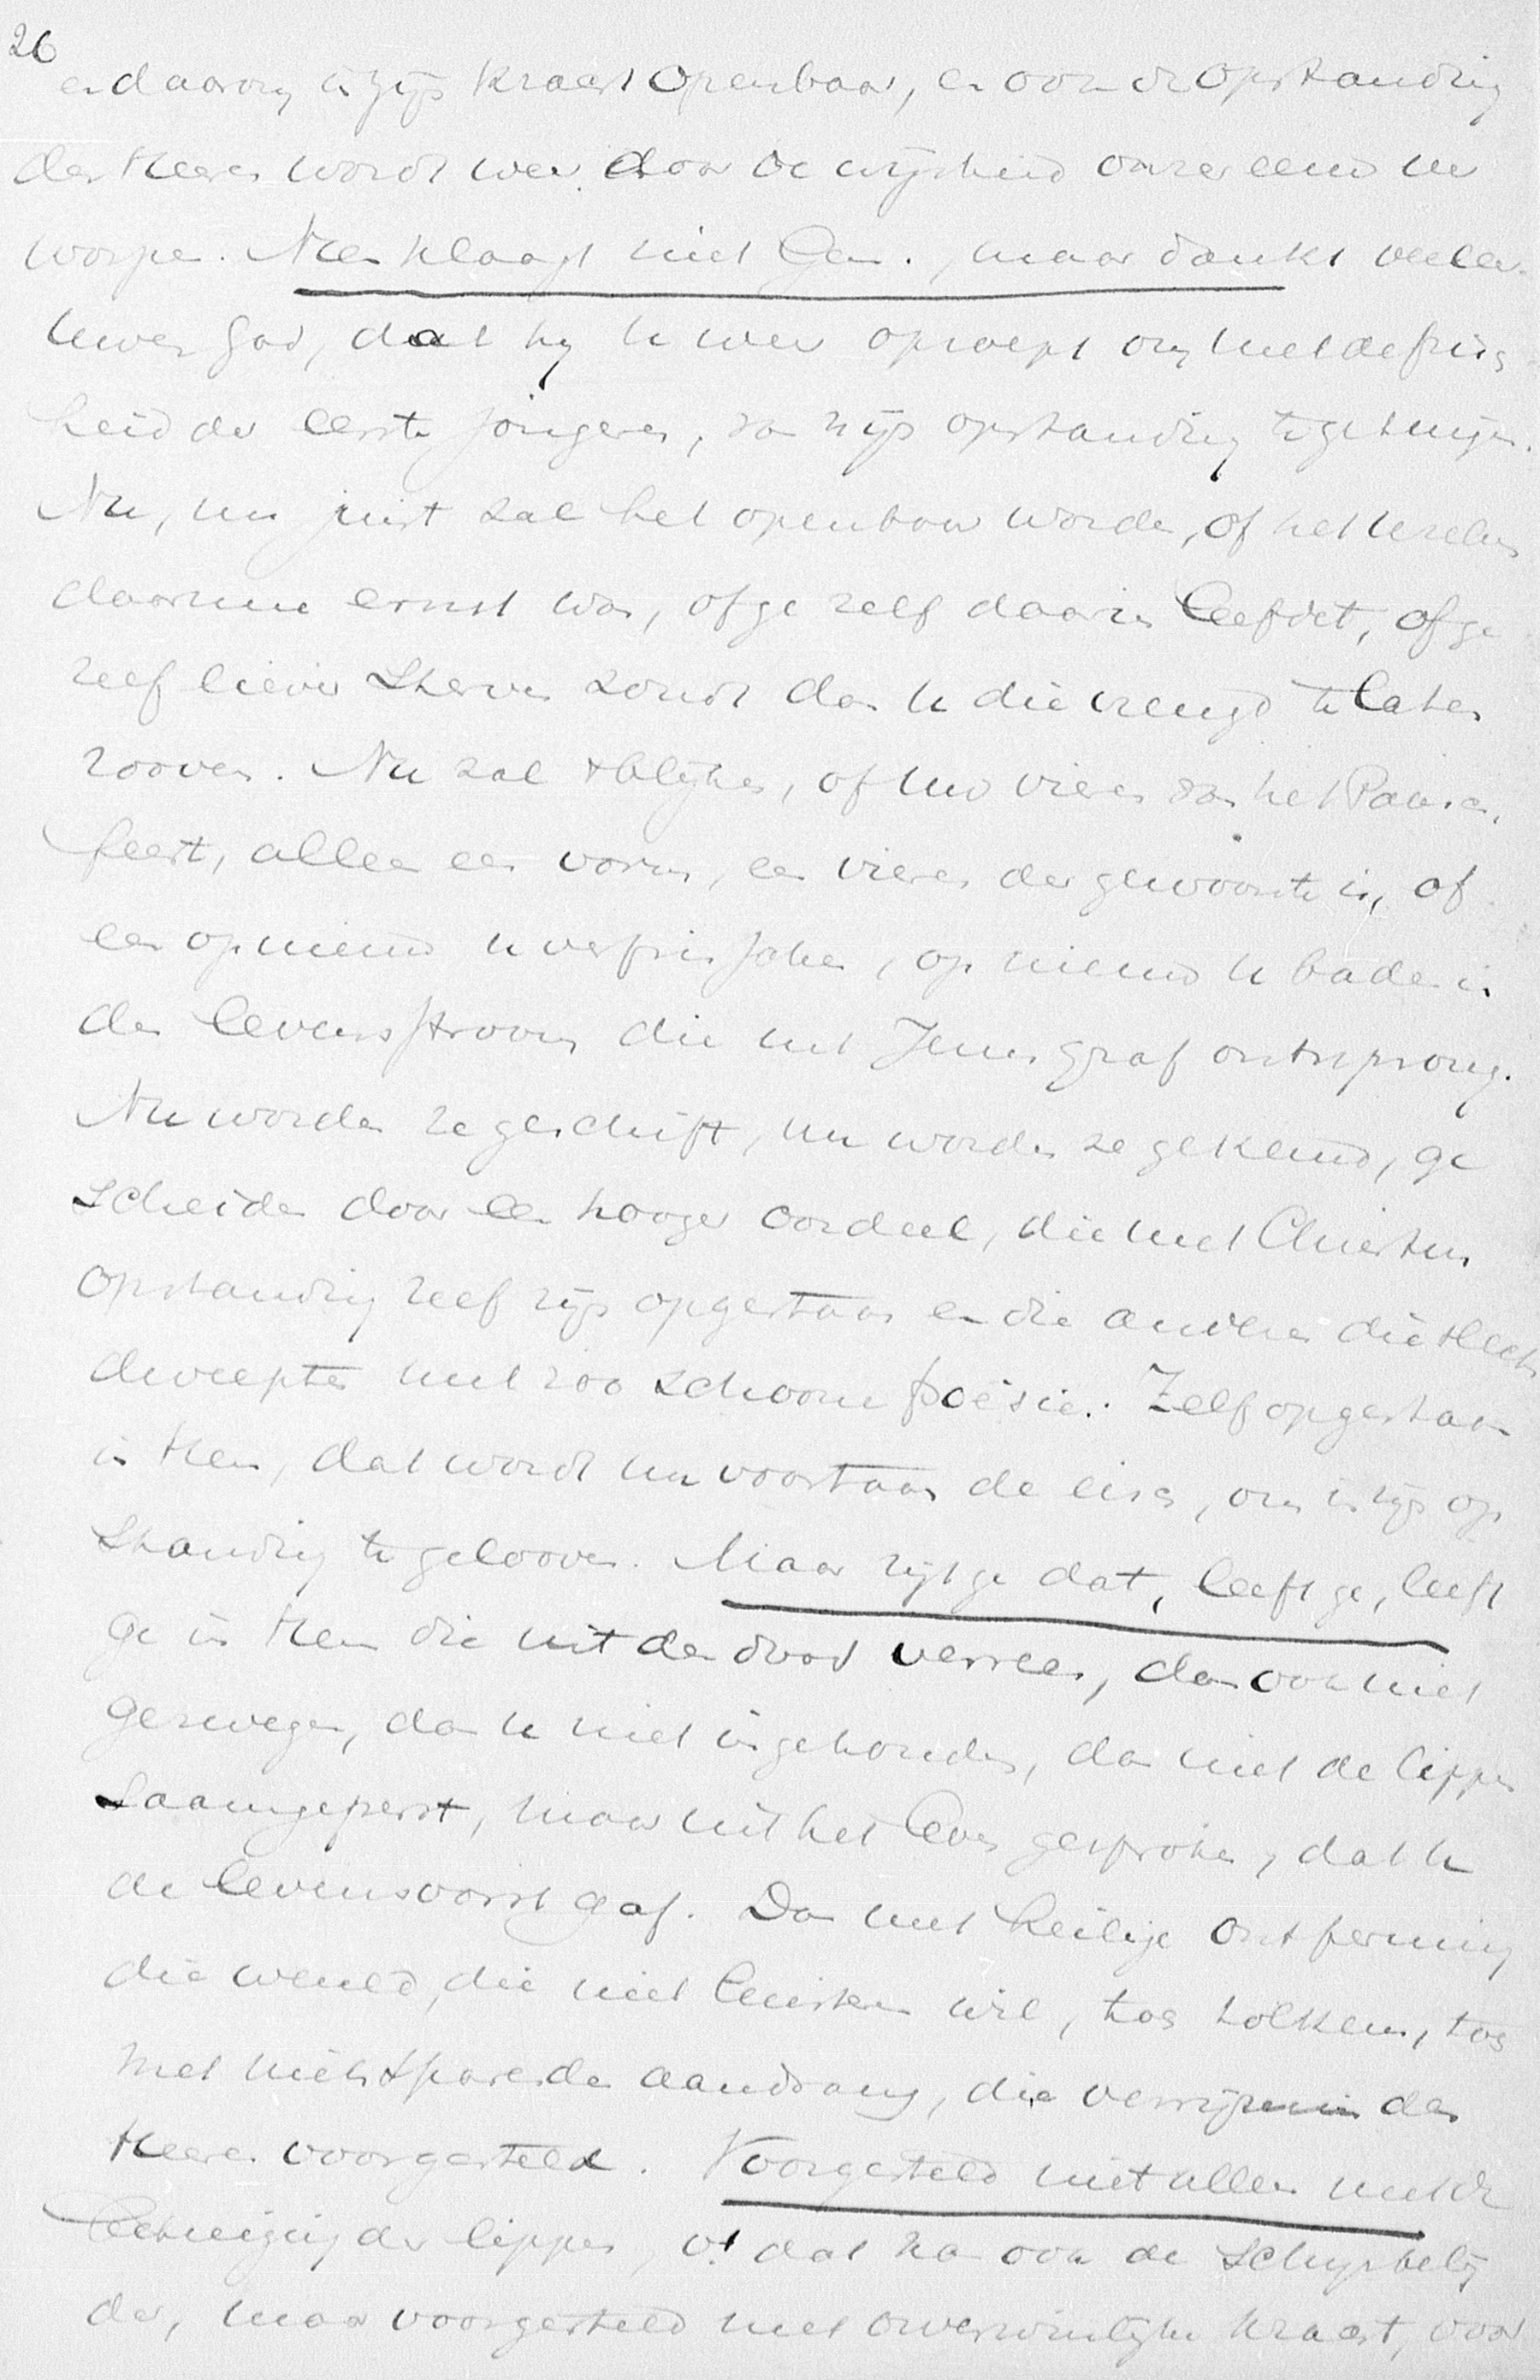 26
en daarom is zijn kracht openbaar, en ook de opstanding
des Heeren wordt weer door de wijsheid onzer eeuw ver
worpen. Neen klaagt niet Gem., maar dankt veeleer
uwen God, dat hij u weer oproept om met de frisch
heid der eerste jongeren, van zijn opstanding te getuigen.
Nu, nu juist zal het openbaar worden, of het u zelven
daarmee ernst was, of ge zelf daarin leefdet, of ge
zelf liever sterven zoudt dan u die vreugd te laten
rooven. Nu zal 't blijken, of uw vieren van het Paasch
feest, alleen een vorm, een vieren der gewoonte is, of
een op nieuw u verfrisschen, op nieuw u baden in
den levensstroom die uit Jezus graf ontsprong.
Nu worden ze geschift, nu worden ze gekend, ge
scheiden door een hooger oordeel, die met Christus
opstanding zelf zijn opgestaan en die anderen die slechts
dweepten met zoo schoone poësie. Zelf opgestaan
in Hem, dat wordt nu voortaan de eisch, om in zijn op
standing te gelooven. Maar zijt ge dat, leeft ge, leeft
ge in Hem die uit den dood verrees, dan ook niet
gezwegen, dan u niet ingehouden, dan niet de lippen
saamgeperst, maar uit het leven gesproken, dat u
de levensvorst gaf. Dan met heilige ontferming
die wereld, die niet luisteren wil, toe
met nietsparenden aandrang, die verrijzenis des
Heeren voorgesteld. Voorgesteld niet alleen met de
der lippen, o! dat kan ook de schijnbelij
der, maar voorgesteld met onverwinlijke kracht, door